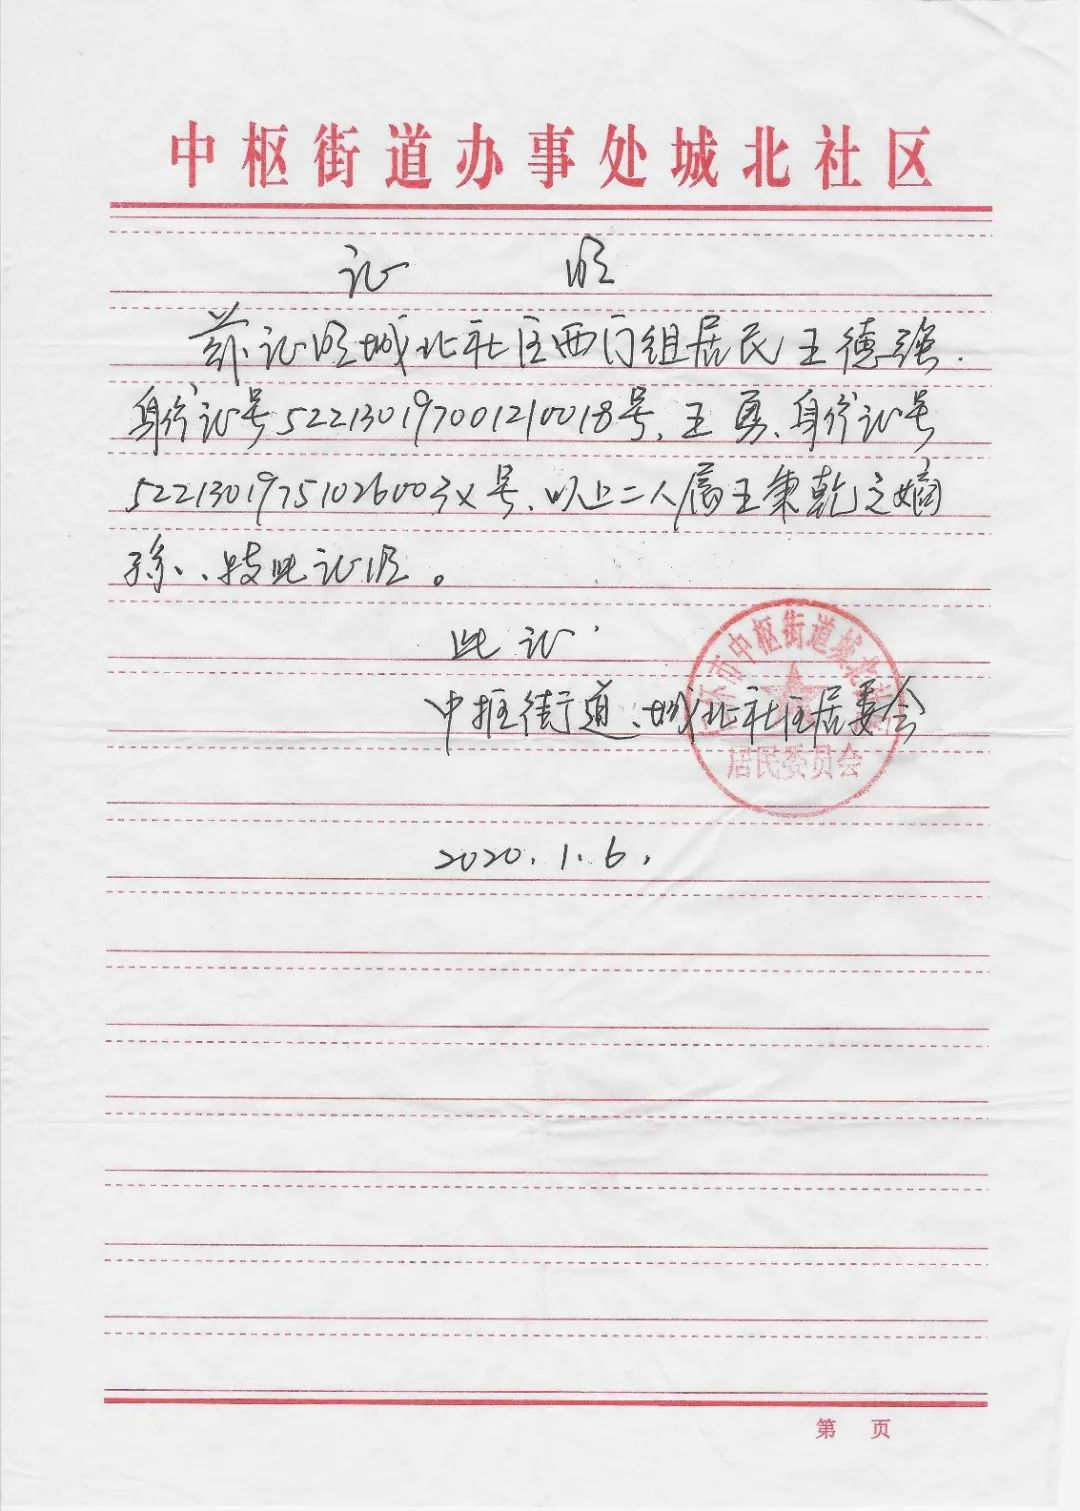 中枢街道办事处城北社区
证 明
兹证明城北社区西门组居民王德强.
身份证号522130197001210018号、王勇、身份证号
52213019751026003X号、以上二人属王秉乾之嫡
孙、特此证明。
此证
中枢街道、城北社区居委会
市中枢街道城北社
居民委员会
2020.1.6.
第 页